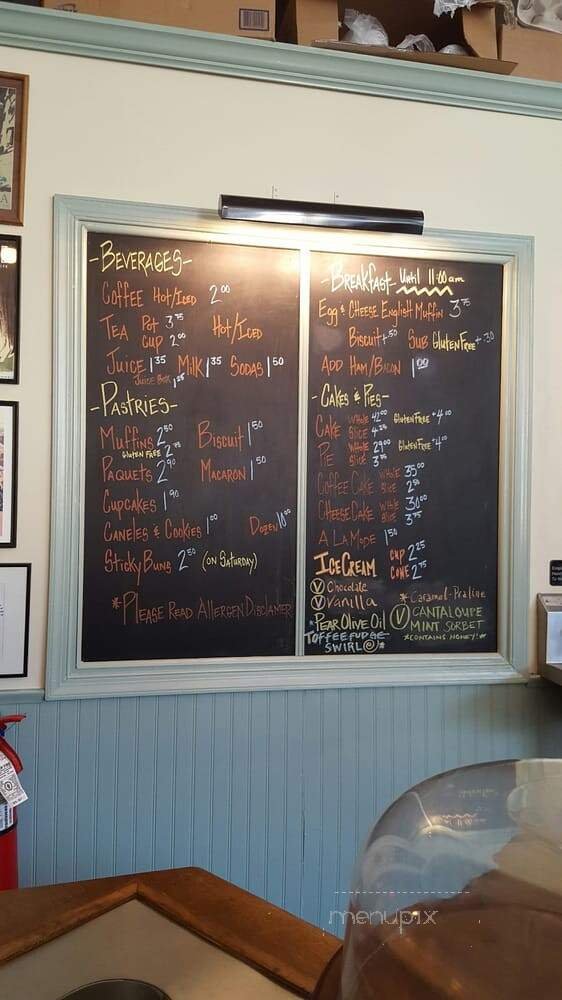 -BEVERAGES-
COFFEE HOT/ICED 2.00
TEA POT 3.75 HOT/ICED
CUP 2.00
JUICE 1.35 MILK 1.35 SODAS 1.50
JUICE BOX 1.25
-PASTRIES-
MUFFINS 2.50 BISCUIT 1.50
GLUTEN FREE 2.75
PAQUETS 2.90 MACARON 1.50
CUPCAKES 1.90
CANELES & COOKIES 1.00 DOZEN 10.00
STICKY BUNS 2.50 (ON SATURDAY)
*PLEASE READ ALLERGEN DISCLAIMER
-BREAKFAST- Until 11:00am
EGG & CHEESE ENGLISH MUFFIN 3.75
BISCUIT +.50 SUB GLUTEN FREE +.30
ADD HAM/BACON 1.00
-CAKES & PIES-
CAKE WHOLE 42.00 GLUTENFREE +4.00
SLICE 4.25
PIE WHOLE 29.00 GLUTENFREE +4.00
SLICE 3.75
COFFEE CAKE WHOLE 35.00
SLICE 2.50
CHEESECAKE WHOLE 30.00
SLICE 3.75
A LA MODE 1.50
ICE CREAM CUP 2.25
CONE 2.75
V Chocolate *Caramel-Praline
V Vanilla V CANTALOUPE
*PEAR OLIVE OIL MINT SORBET
TOFFEE FUDGE *CONTAINS HONEY!*
SWIRL @*
menupix